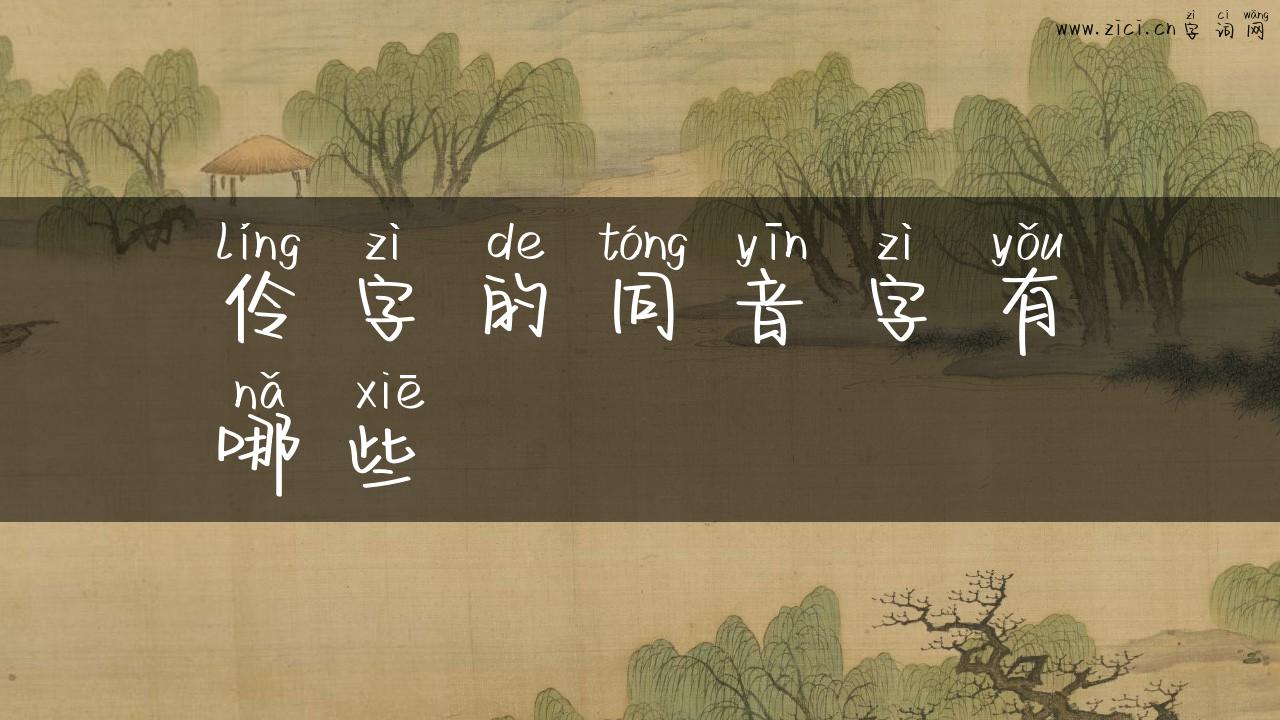 zì cí wǎng
www.zici.cn 字 词 网
líng zì de tóng yīn zì yǒu
伶 字 的 同 音 字 有
nǎ xiē
哪 些